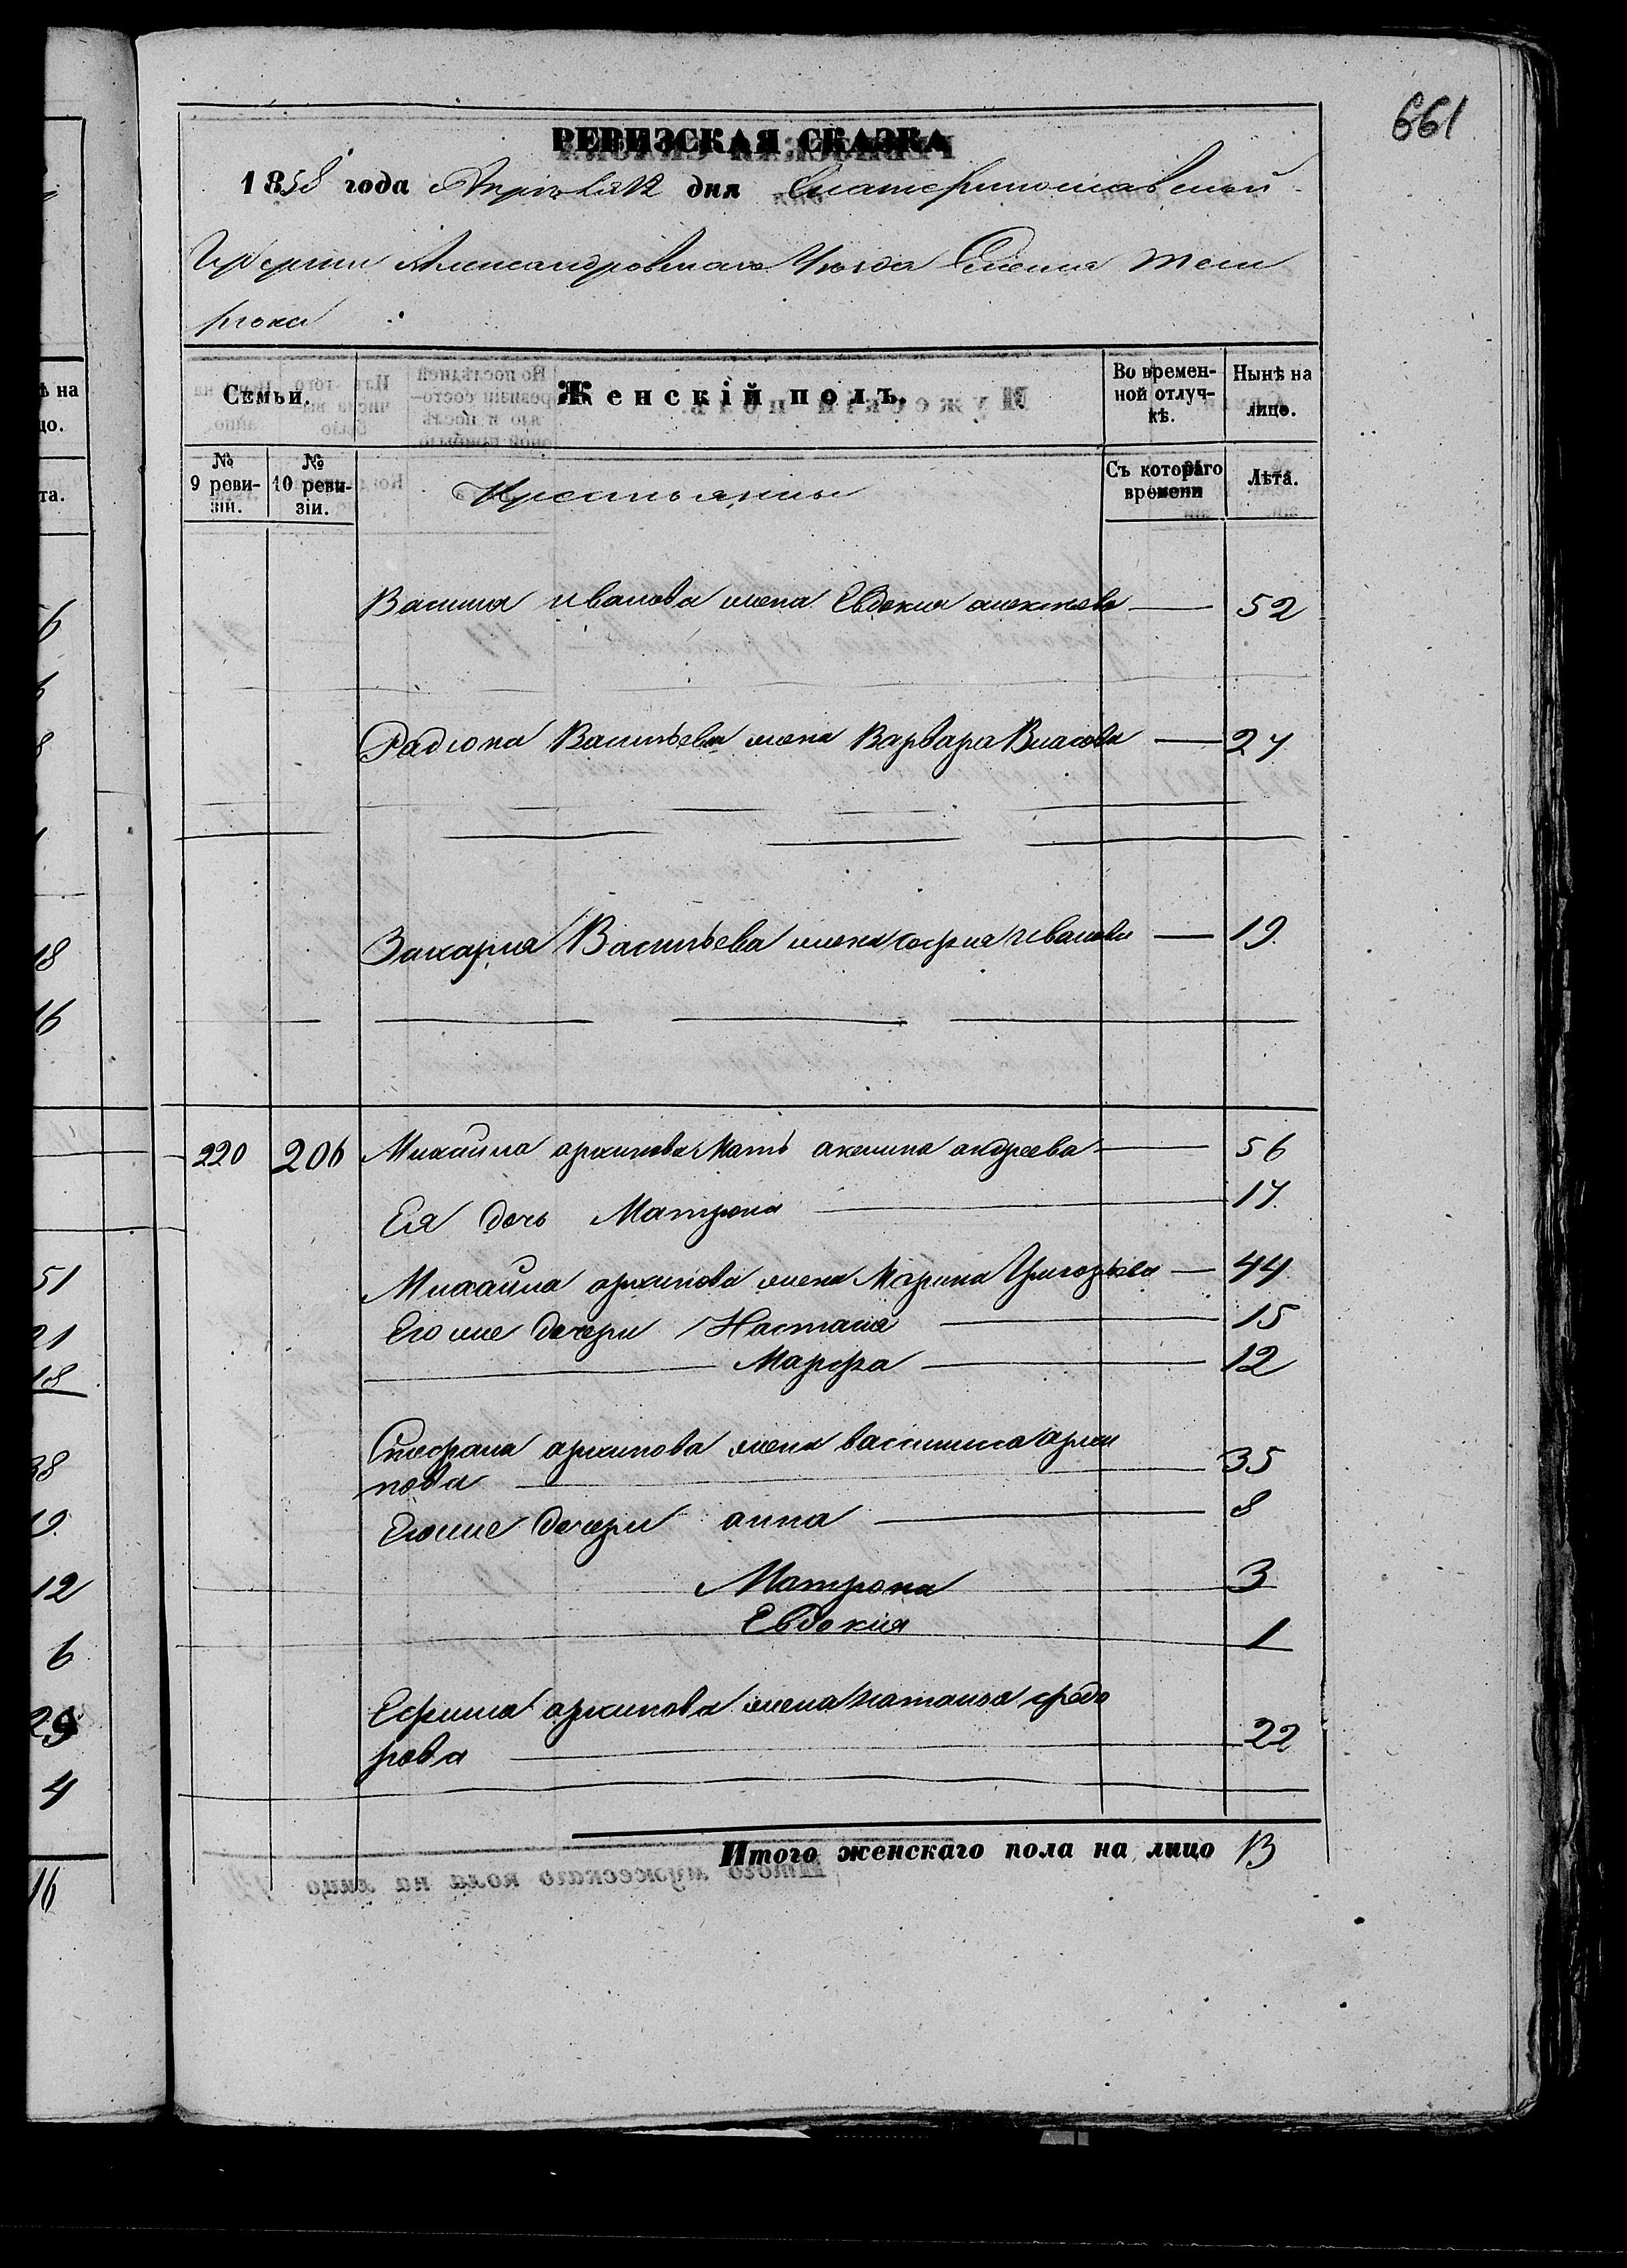 661
РЕВИЗСКАЯ СКАЗКА
1858 года Апреля 12 дня Екатеринославской
Губернии Александровскаго Уезда Селения Тем
рюка
Семьи.
Женскій полъ.
Во времен-
ной отлуч-
кѣ.
Нынѣ на
лицо.
№
9 реви-
зіи.
№
10 реви-
зіи.
Крестьянъ
Съ котораго
времени
Лѣта.
Василия иванова жена Евдокия алексеева — 52
Радиона Васильева жена Варвара Власова — 27
Захария Васильева жена София Иванова — 19
220 206 Михаила архипова Мать акелина андреева — 56
Ея дочь Матрона — 17
Михаила архипова жена Марина Григорьева — 44
Его же дочери Настасия — 15
— Марфа — 12
Стефана архипова жена василиса архи
пова — 35
Его же дочери анна — 8
Матрона 3
Евдокия 1
Ефима архипова жена наталья федо
рова — 22
Итого женскаго пола на лицо 13
ѣ на
цо.
та.
6
8
18
16
51
21
18
38
19
12
6
29
4
16